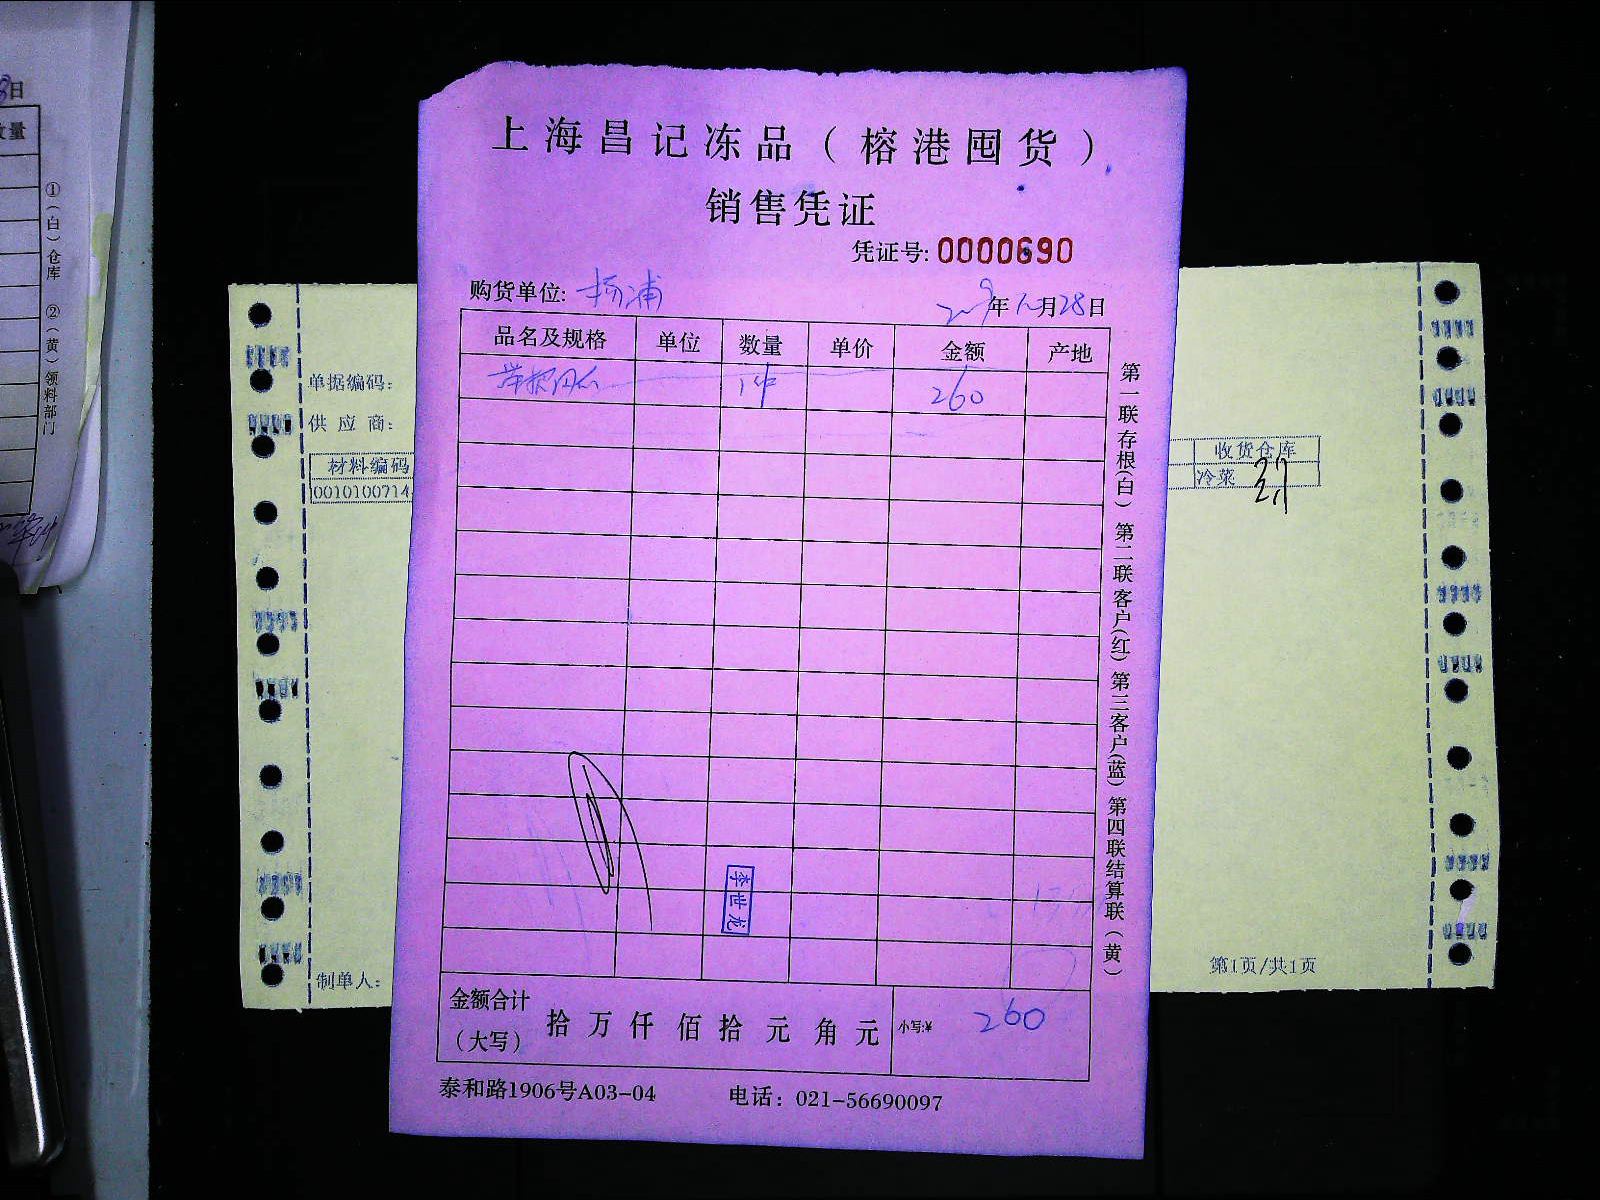 上海昌记冻品（榕港囤货）
销售凭证
凭证号: 0000690
购货单位: 杨浦
年 月28日
品名及规格 单位 数量 单价 金额 产地
1件 260
李世龙
金额合计（大写） 拾 万 仟 佰 拾 元 角 元 小写:¥ 260
泰和路1906号A03-04 电话：021-56690097
第一联存根(白) 第二联客户(红) 第三客户(蓝) 第四联结算联(黄)
单据编码：
供应商：
材料编码
0010100714
制单人：
收货仓库
冷菜
第1页/共1页
日
数量
①(白)仓库 ②(黄)领料部门